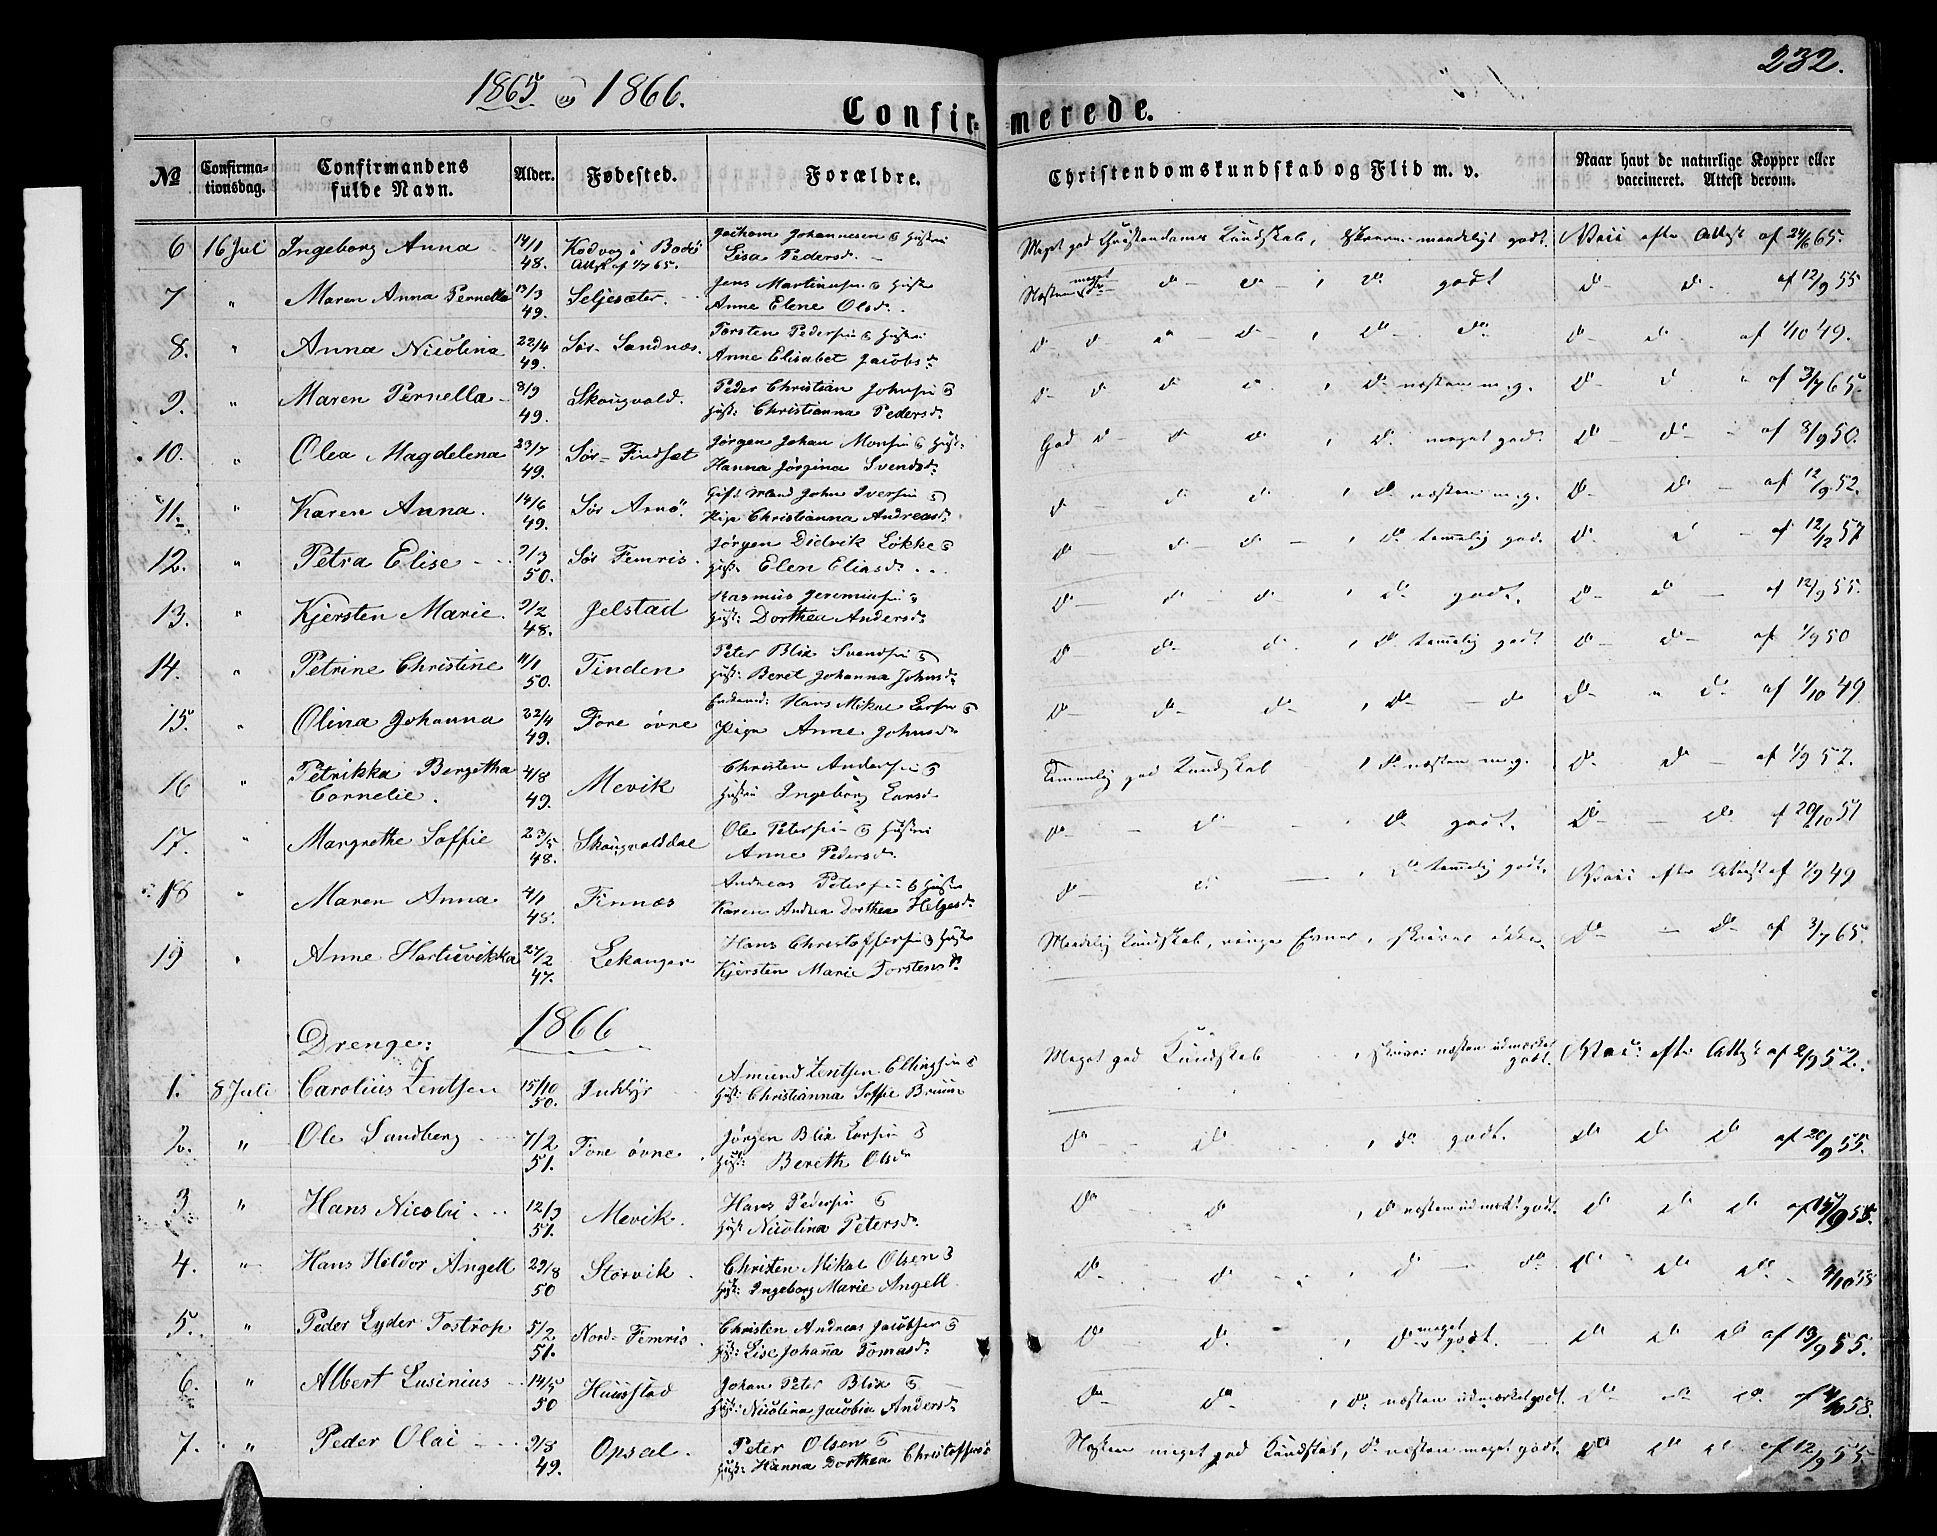 232.
1865 og 1866.
Confirmerede.
№ Confirmationsdag. Confirmandens fulde Navn. Alder. Fødested. Forældre. Christendomskundskab og Flid m. v. Naar havt de naturlige Kopper eller vaccineret. Attest derom.
6 16 Juli Ingeborg Anna 14/1 48. Kodvog i Bodø Attest af 1/7 65. Jochom Johannesen & Hustru Lisa Pedersdr. Meget god Christendoms Kundskab, skrev mandeligt godt. Vacc. efter Attest af 24/6 65.
7 " Maren Anna Pernella 13/3 49. Seljesæter. Jens Martinusen & Hustru Anne Elene Olsdr. Næsten meget do do do , do godt do do af 12/9 55
8. " Anna Nicolina 22/4 49. Sør-Sandnæs. Torsten Pedersen & Hustru Anne Elisabet Jacobsdr. do do " do , do do do do af 1/10 49.
9. " Maren Pernella 8/9 49. Skougvold. Peder Christian Johnsen & Hust: Christianna Pedersdr. do do do do , do næsten m.g. do do " af 3/7 65.
10. " Olea Magdelena 23/7 49. Sør-Findset Jørgen Johan Monsen & Hust: Hanna Jørgina Svendsdr. God do do do , do meget godt do do af 8/9 50.
11. " Karen Anna. 14/6 49. Sør Arnö. Gift Mand John Iversen & Pige Christianna Andreasdr. do do do , do næsten m.g. do do af 12/9 52.
12. " Petra Elise 9/3 50. Sør Femris. Jørgen Didrik Løkke & Hust: Elen Eliasdr. do do do , do tammelig godt do do af 12/12 57
13. " Kjersten Marie. 9/2 48. Jelstad Rasmus Jeremiasen & Hust: Dorthea Andersdr. do do do , do godt. do do af 12/9 55.
14. " Petrine Christine 11/1 50. Tinden Peter Blix Svendsen & Hust: Beret Johanna Johnsdr. do do do , do tammelig godt do do af 1/9 50
15. " Olina Johanna 22/4 49. Fore øvre Enkemd: Hans Mikal Larsen & Pige Anne Johnsdr. do do do , do do do " do af 1/10 49
16 " Petrikka Bergetha Cornelie. 4/8 49. Mevik Christen Andersen & Hustru Ingeborg Larsdr. Tammelig god Kundskab , do næsten m.g. do do af 1/9 52.
17. " Margrethe Soffie 23/5 48. Skougvolddal Ole Petersen & Hustru Anne Pedersdr. do do , do godt. do do af 20/10 51
18 " Maren Anna 4/1 48. Finnæs Andreas Petersen & Hustru Karen Andrea Dorthea Helgesdr. do do , do tammelig godt. Vacc. efter Attest af 1/9 49
19 " Anne Hartvikka 27/2 47. Lekanger Hans Christoffersen & Hustru Kjersten Marie Torstensdr. Maadelig Kundskab, ringe Evner, skriver ikke do do af 3/7 65.
Drenge: 1866
1. 8 Juli Carolius Zentsen 15/10 50. Inddyr Amund Zentsen Ellingsen & Hust: Christianna Soffie Bruun Meget god Kundskab , skriver næsten udmærket godt. Vacc: efter Attest af 2/9 52.
2. " Ole Sandberg 7/2 51. Fore øvre Jørgen Blix Larsen & Hust: Bereth Olsdr do do , do godt. do do do af 20/9 55.
3 " Hans Nicolai 12/3 51. Mevik. Hans Pedersen & Hust: Nicolina Petersdr. do do , do næsten udmærket godt. do do do af 15/9 55.
4. " Hans Heldor Angell 29/8 50 Storvik Christen Mikal Olsen & Hust: Ingeborg Marie Angell do do , do do do do do 4/10 58
5. " Peder Lyder Tostrop 5/2 51. Nord-Femris Christen Andreas Jacobsen & Hust: Lise Johanna Tomasdr. do do , do meget godt. do do do af 13/9 55.
6. " Albert Lusinius 14/5 50 Huusstad Johan Peter Blix & Hust: Nicolina Jacobia Andersdr. do do , do næsten udmærket godt. do do do af 4/10 58.
7. " Peder Olai 9/8 49. Opsal. Peter Olsen & Hust: Hanna Dorthea Christoffersdr Næsten meget god Kundskab, do næsten meget godt. do do do af 12/9 55.